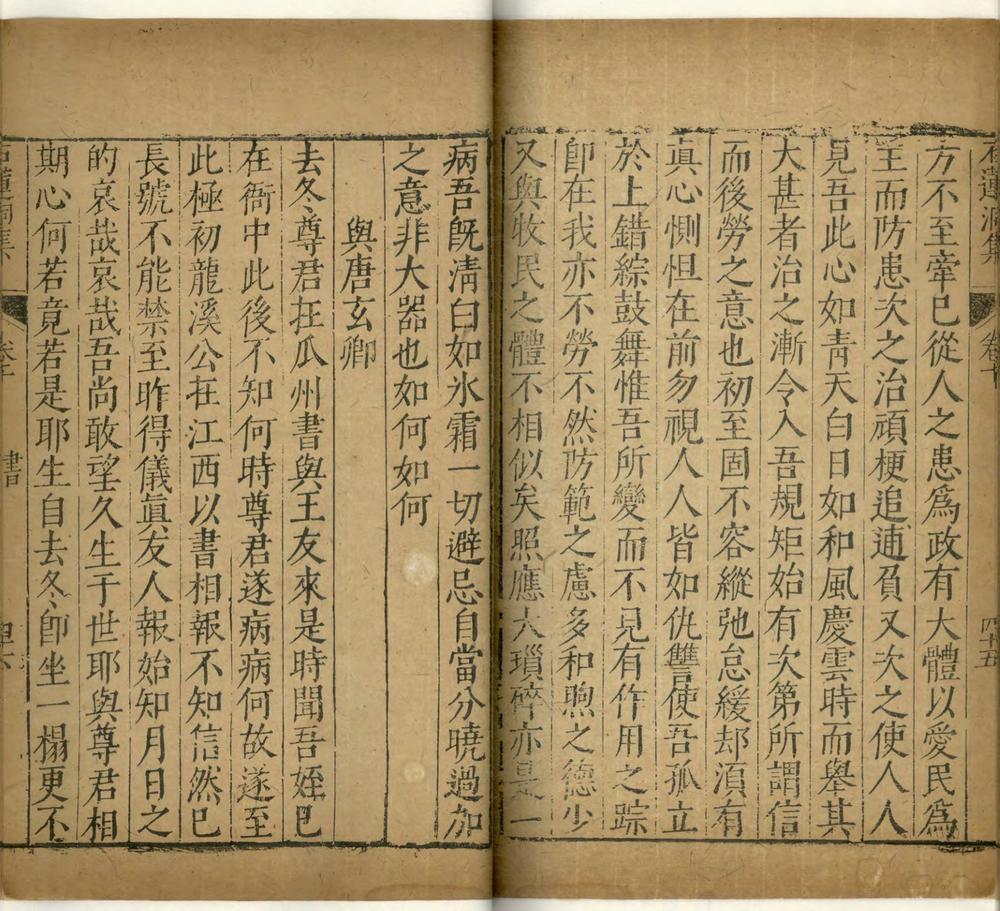 石蓮洞集
卷十
四十五
方不至牽已從人之患爲政有大體以愛民爲
主而防患次之治頑梗追逋負又次之使人人
見吾此心如靑天白日如和風慶雲時而舉其
大甚者治之漸令入吾規矩始有次第所謂信
而後勞之意也初至固不容縱弛怠緩却湏有
眞心惻怛在前勿視人人皆如仇讐使吾孤立
於上錯綜鼓舞惟吾所變而不見有作用之踪
卽在我亦不勞不然防範之慮多和煦之德少
又與牧民之體不相似矣照應大瑣碎亦是一
病吾旣淸白如氷霜一切避忌自當分曉過加
之意非大器也如何如何
與唐玄卿
去冬尊君在瓜州書與王友來是時聞吾姪已
在衙中此後不知何時尊君遂病病何故遂至
此極初龍溪公在江西以書相報不知信然已
長號不能禁至昨得儀眞友人報始知月日之
的哀哉哀哉吾尚敢望久生于世耶與尊君相
期心何若竟若是耶生自去冬卽坐一榻更不
石蓮洞集
卷十
書
四十六